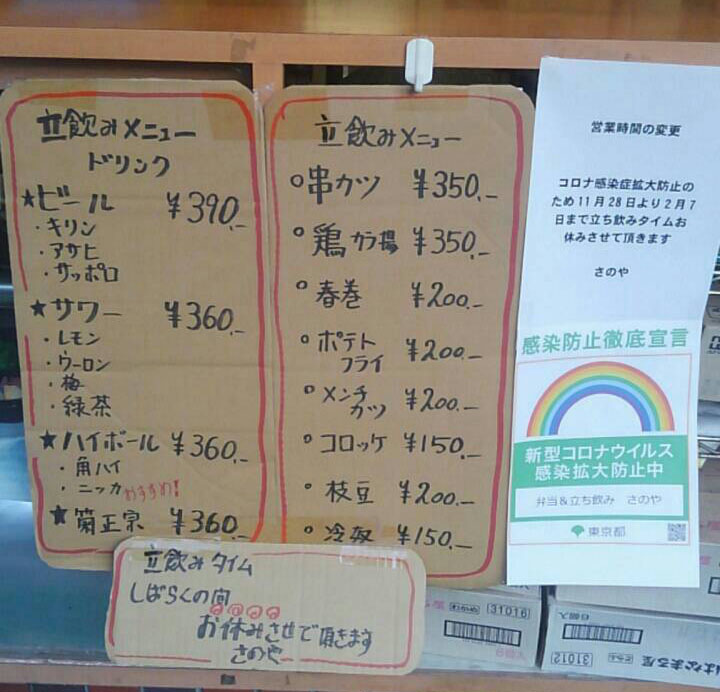 立飲みメニュー
ドリンク
★ビール ¥390.-
・キリン
・アサヒ
・サッポロ
★サワー ¥360.-
・レモン
・ウーロン
・梅
・緑茶
★ハイボール ¥360.-
・角ハイ
・ニッカ おすすめ!
★菊正宗 ¥360.-
立飲みメニュー
○串カツ ¥350.-
○鶏カラ揚 ¥350.-
○春巻 ¥200.-
○ポテト
フライ ¥200.-
○メンチ
カツ ¥200.-
○コロッケ ¥150.-
○枝豆 ¥200.-
○冷奴 ¥150.-
立飲みタイム
しばらくの間
お休みさせて頂きます
さのや
営業時間の変更
コロナ感染症拡大防止の
ため11月28日より2月7
日まで立ち飲みタイムお
休みさせて頂きます
さのや
感染防止徹底宣言
新型コロナウイルス
感染拡大防止中
弁当&立ち飲み さのや
東京都
31016
31012
はなまる屋